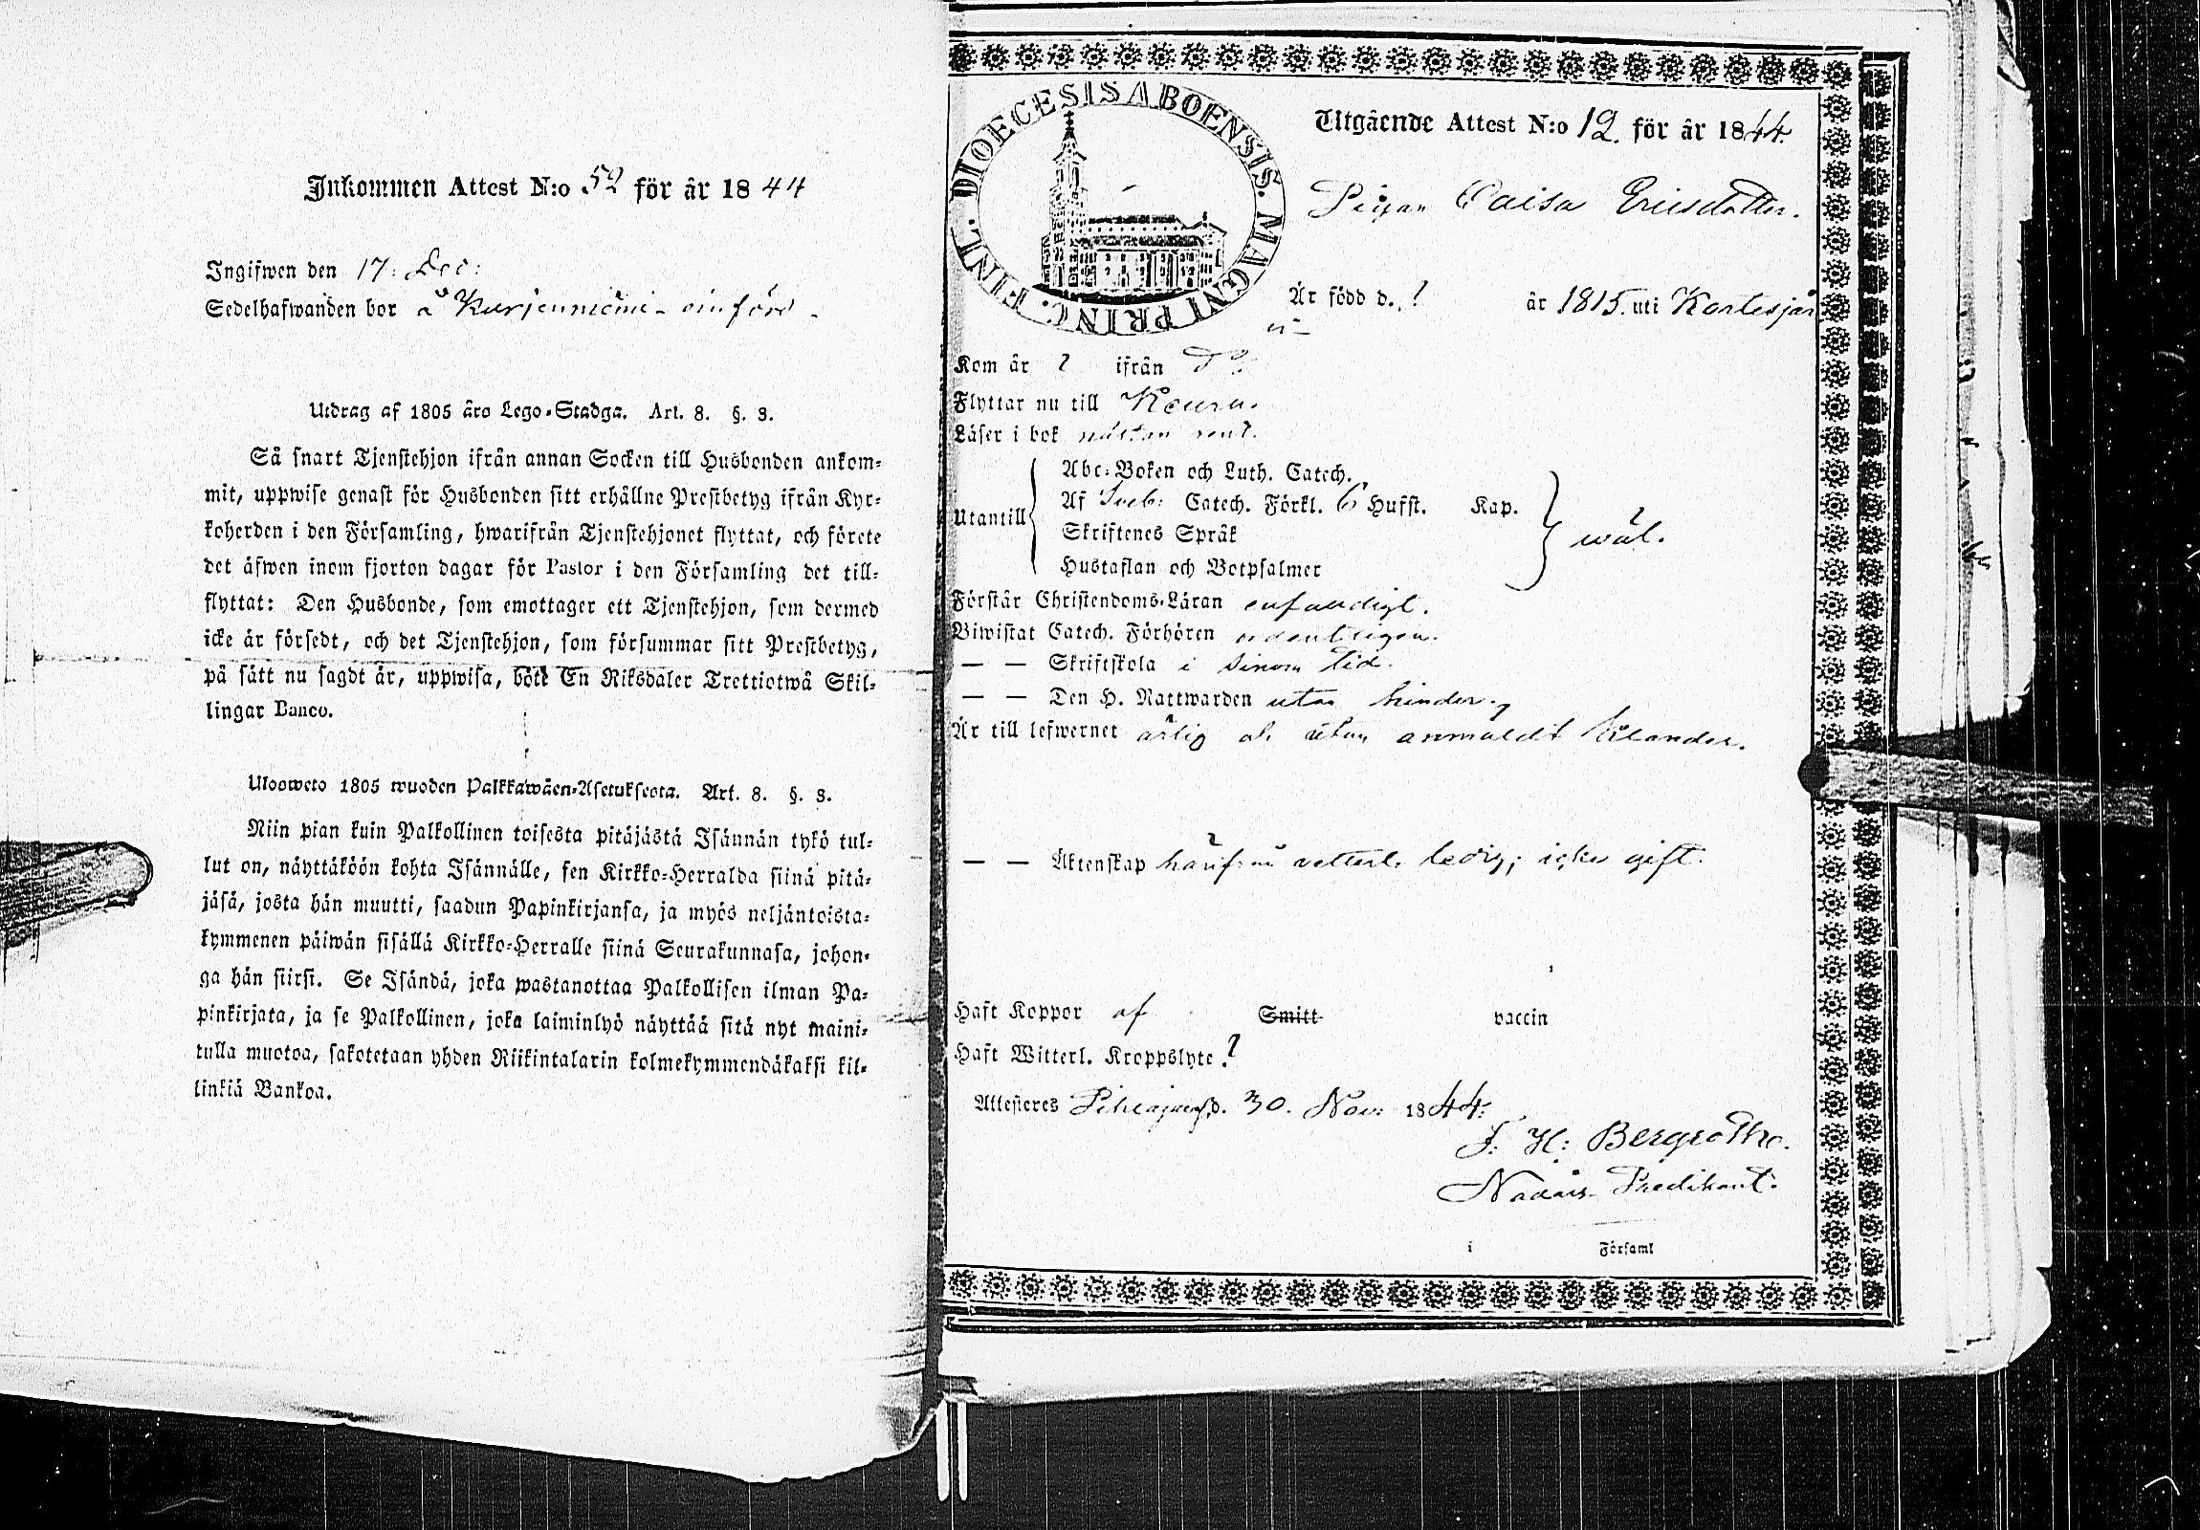 Inkommen Attest N:o 52 för år 1844
Ingifwen den 17: Dec:
Sedelhafwanden bor å Kurjenniemi - införd -
Utdrag af 1805 års Lego-Stadga. Art. 8. §. 3.
Så snart Tjenstehjon ifrån annan Socken till Husbonden ankom-
mit, uppwise genast för Husbonden sitt erhållne Prestbetyg ifrån Kyr-
koherden i den Församling, hwarifrån Tjenstehjonet flyttat, och förete
det äfwen inom fjorton dagar för Pastor i den Församling det till-
flyttat: Den Husbonde, som emottager ett Tjenstehjon, som dermed
icke är försedt, och det Tjenstehjon, som försummar sitt Prestbetyg,
på sätt nu sagdt är, uppwisa, böte En Riksdaler Trettiotwå Skil-
lingar Banco.
Ulosweto 1805 wuoden Palkkawäen-Asetuksesta. Art. 8. §. 3.
Niin pian kuin Palkollinen toisesta pitäjästä Isännän tykö tul-
lut on, näyttäköön kohta Isännälle, sen Kirkko-Herralda siinä pitä-
jäsä, josta hän muutti, saadun Papinkirjansa, ja myös neljäntoista-
kymmenen päiwän sisällä Kirkko-Herralle siinä Seurakunnasa, johon-
ga hän siirsi. Se Isändä, joka wastanottaa Palkollisen ilman Pa-
pinkirjata, ja se Palkollinen, joka laiminlyö näyttää sitä nyt maini-
tulla muotoa, sakotetaan yhden Riikintalarin kolmekymmendäkaksi kil-
linkiä Bankoa.
DIOECESIS ABOENSIS. MAGNI PRINC. FINL.
Utgående Attest N:o 12. för år 1844.
Pigan Caisa Ericsdotter.
Är född d. ? år 1815. uti Kortesjär
vi
Kom år ? ifrån D:o
Flyttar nu till Keuru.
Läser i bok nästan rent.
Utantill
Abc-Boken och Luth. Catech.
Af Sveb: Catech. Förkl. 6 Hufst. Kap.
Skriftenes Språk
Hustaflan och Botpsalmer
wäl.
Förstår Christendoms-Läran enfaldigt.
Biwistat Catech. Förhören ordentligen.
— — Skriftskola i sinom tid.
— — Den H. Nattwarden utan hinder,
Är till lefwernet ärlig och utan anmäldt klander.
— — Äktenskap ledig; icke gift.
Haft Koppor af Smitt vaccin
Haft Witterl. Kroppslyte ?
Attesteres Pihlajavesi d. 30. Nov: 1844:
F: H: Bergroth.
Nådårs-Predikant.
i Församl